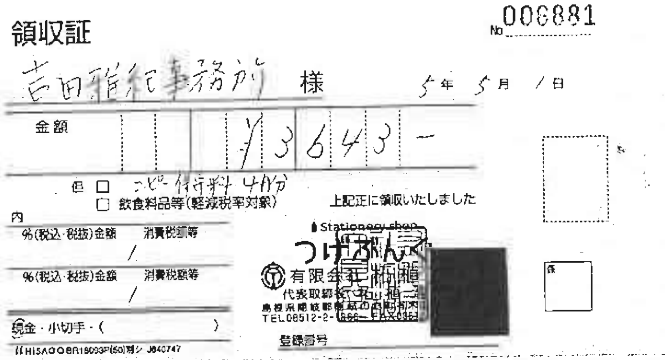 領収証
No 006881
吉田雅紀事務所 様
5年 5月 1日
金額 ¥3643-
但 □ コピー 4月分
□ 飲食料品等(軽減税率対象)
上記正に領収いたしました
内
%(税込・税抜)金額 消費税額等
/
%(税込・税抜)金額 消費税額等
/
現金・小切手・( )
Stationery shop
つげぶんぐ
有限会社
代表取締役
島根県隠岐郡
TEL08512-2-
登録番号
係
HISAGO